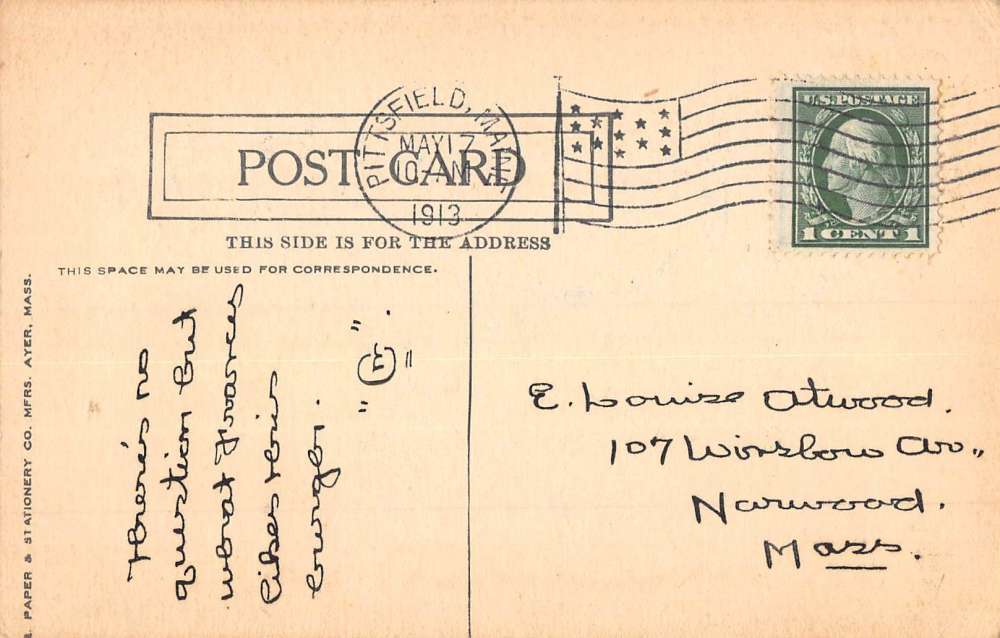 PITTSFIELD, MAINE
MAY 17
10 AM
1913
U.S. POSTAGE
1 CENT 1
POST CARD
THIS SIDE IS FOR THE ADDRESS
THIS SPACE MAY BE USED FOR CORRESPONDENCE.
PAPER & STATIONERY CO. MFRS. AYER, MASS.
There's no
question but
what Frances
likes this
" E "
E. Louise Atwood.
107 Winslow Av.,
Norwood.
Mass.